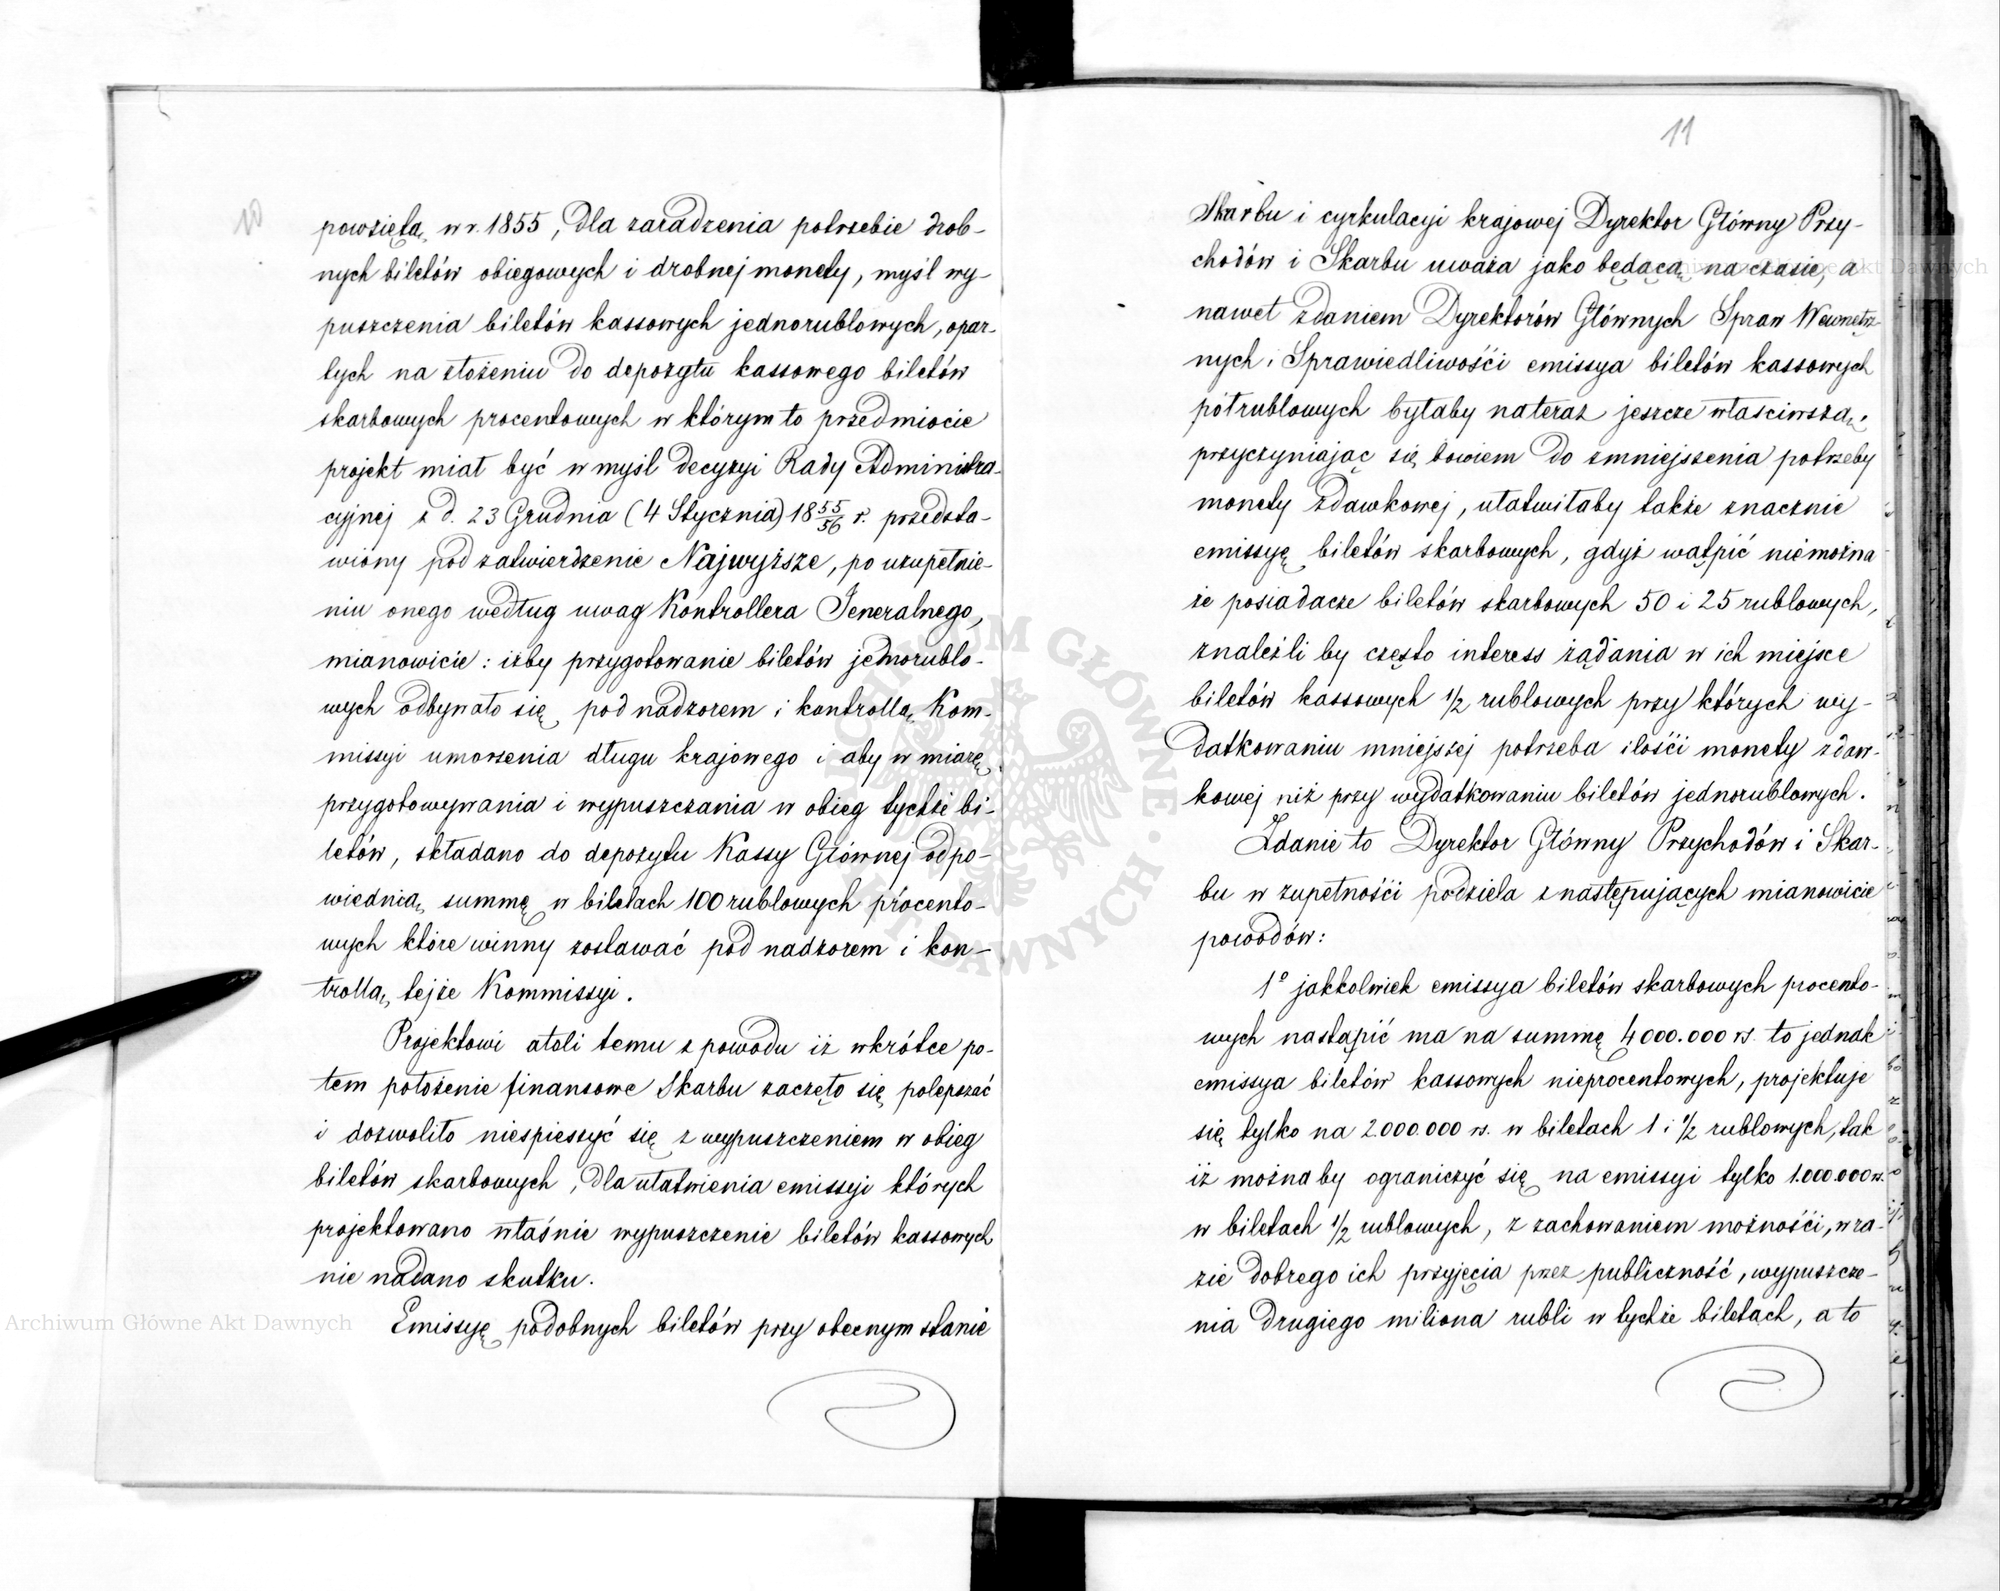 10
powziętą w r. 1855, dla zaradzenia potrzebie drob-
nych biletów obiegowych i drobnej monety, myśl wy-
puszczenia biletów kassowych jednorublowych, opar-
tych na złożeniu do depozytu kassowego biletów
skarbowych procentowych w którym to przedmiocie
projekt miał być w myśl decyzyi Rady Administra-
cyjnej z d. 23 Grudnia (4 Stycznia) 18 55/56 r. przedsta-
wiony pod zatwierdzenie Najwyższe, po uzupełnie-
niu onego według uwag Kontrollera Jeneralnego,
mianowicie: iżby przygotowanie biletów jednorublo-
wych odbywało się pod nadzorem i kontrollą Kom-
missyi umorzenia długu krajowego i aby w miarę
przygotowywania i wypuszczania w obieg tychże bi-
letów, składano do depozytu Kassy Głównej odpo-
wiednią summę w biletach 100 rublowych procento-
wych które winny zostawać pod nadzorem i kon-
trollą tejże Kommissyi.
Projektowi atoli temu z powodu iż wkrótce po-
tem położenie finansowe Skarbu zaczęło się polepszać
i dozwoliło niespieszyć się z wypuszczeniem w obieg
biletów skarbowych, dla ułatwienia emissyi których
projektowano właśnie wypuszczenie biletów kassowych
nie nadano skutku.
Emissyę podobnych biletów przy obecnym stanie
11
Skarbu i cyrkulacyi krajowej Dyrektor Główny Przy-
chodów i Skarbu uważa jako będącą na czasie, a
nawet zdaniem Dyrektorów Głównych Spraw Wewnętrz-
nych i Sprawiedliwośći emissya biletów kassowych
półrublowych byłaby nateraz jeszcze właściwszą,
przyczyniając się bowiem do zmniejszenia potrzeby
monety zdawkowej, ułatwiłaby także znacznie
emissyę biletów skarbowych, gdyż wątpić niemożna
że posiadacze biletów skarbowych 50 i 25 rublowych,
znaleźli by często interess żądania w ich miejsce
biletów kassowych 1/2 rublowych przy których wy-
datkowaniu mniejszej potrzeba ilośći monety zdaw-
kowej niż przy wydatkowaniu biletów jednorublowych.
Zdanie to Dyrektor Główny Przychodów i Skar-
bu w zupełnośći podziela z następujących mianowicie
powodów:
1º jakkolwiek emissya biletów skarbowych procento-
wych nastąpić ma na summę 4000.000 rs. to jednak
emissya biletów kassowych nieprocentowych, projektuje
się tylko na 2.000.000 rs. w biletach 1 i 1/2 rublowych, tak
iż możnaby ograniczyć się na emissyi tylko 1.000.000 rs.
w biletach 1/2 rublowych, z zachowaniem możnośći, w ra-
zie dobrego ich przyjęcia przez publiczność, wypuszcze-
nia drugiego miliona rubli w tychże biletach, a to
Archiwum Główne Akt Dawnych